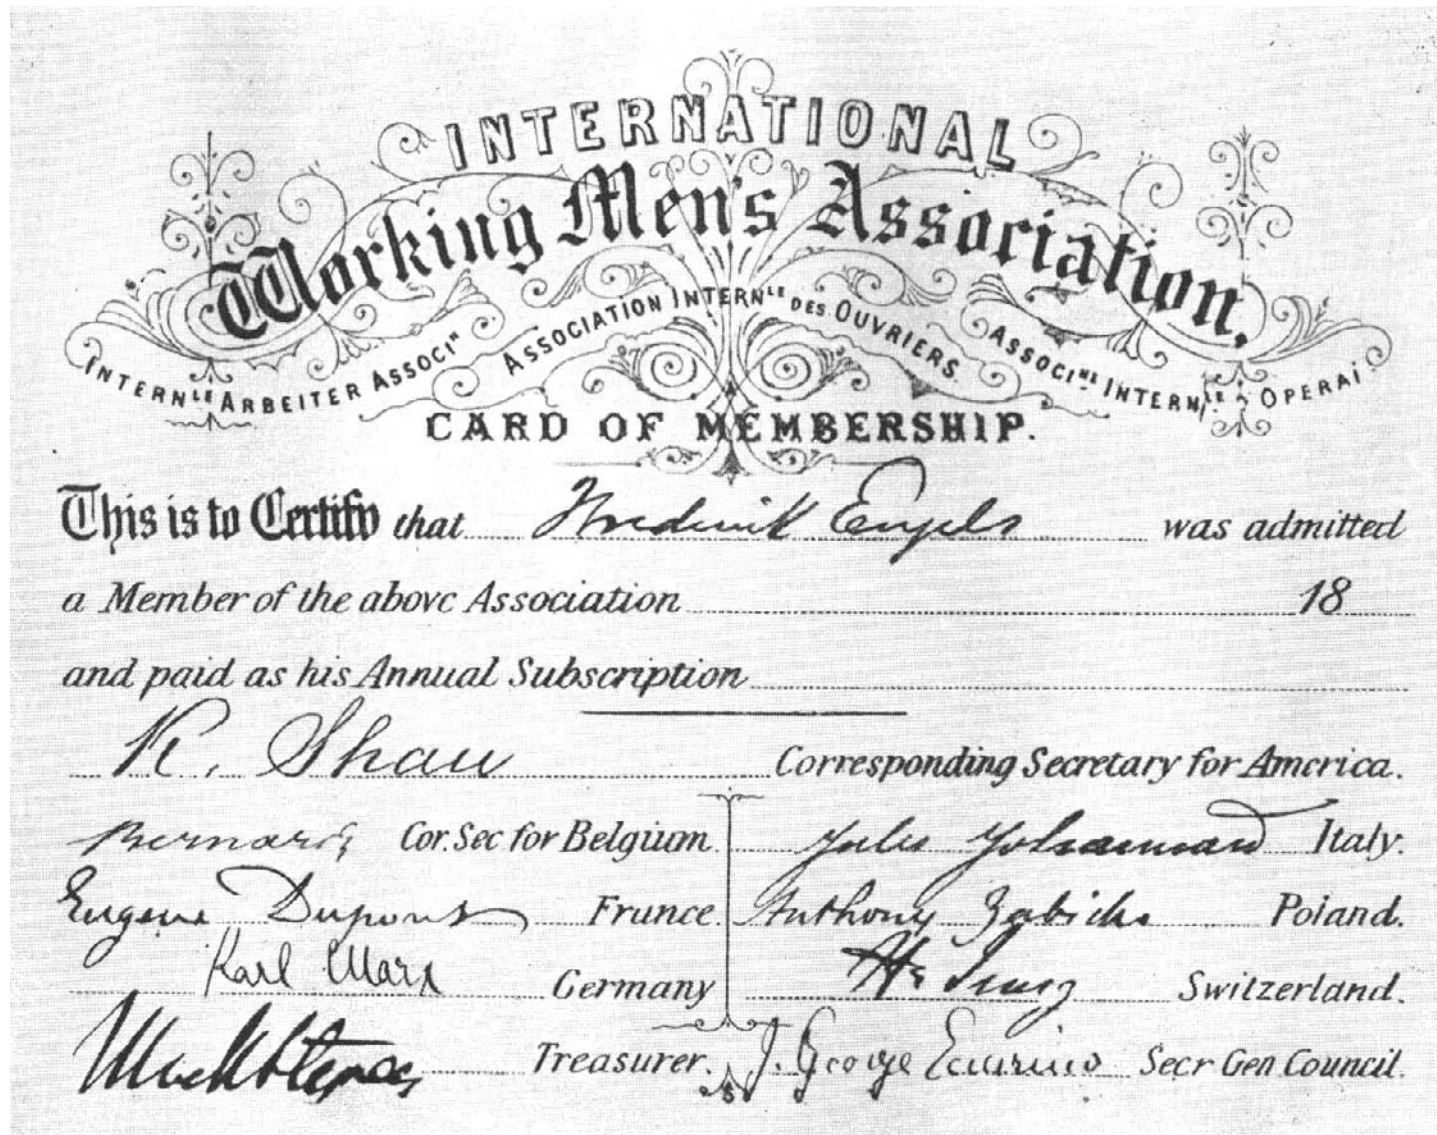 INTERNATIONAL
Working Men's Association.
INTERNLE ARBEITER ASSOCIN
ASSOCIATION INTERNLE DES OUVRIERS
ASSOCINE INTERNLE OPERAI
CARD OF MEMBERSHIP.
This is to Certify that Frederick Engels was admitted
a Member of the above Association 18
and paid as his Annual Subscription
R. Shaw Corresponding Secretary for America.
Bernard Cor. Sec for Belgium.
Jules Johannard Italy.
Eugene Dupont France.
Anthony Zabicki Poland.
Karl Marx Germany
H. Jung Switzerland.
Treasurer.
J. George Eccarius Secr Gen Council.